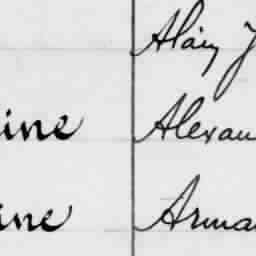 Alain J
ine Alexan
ine Arma